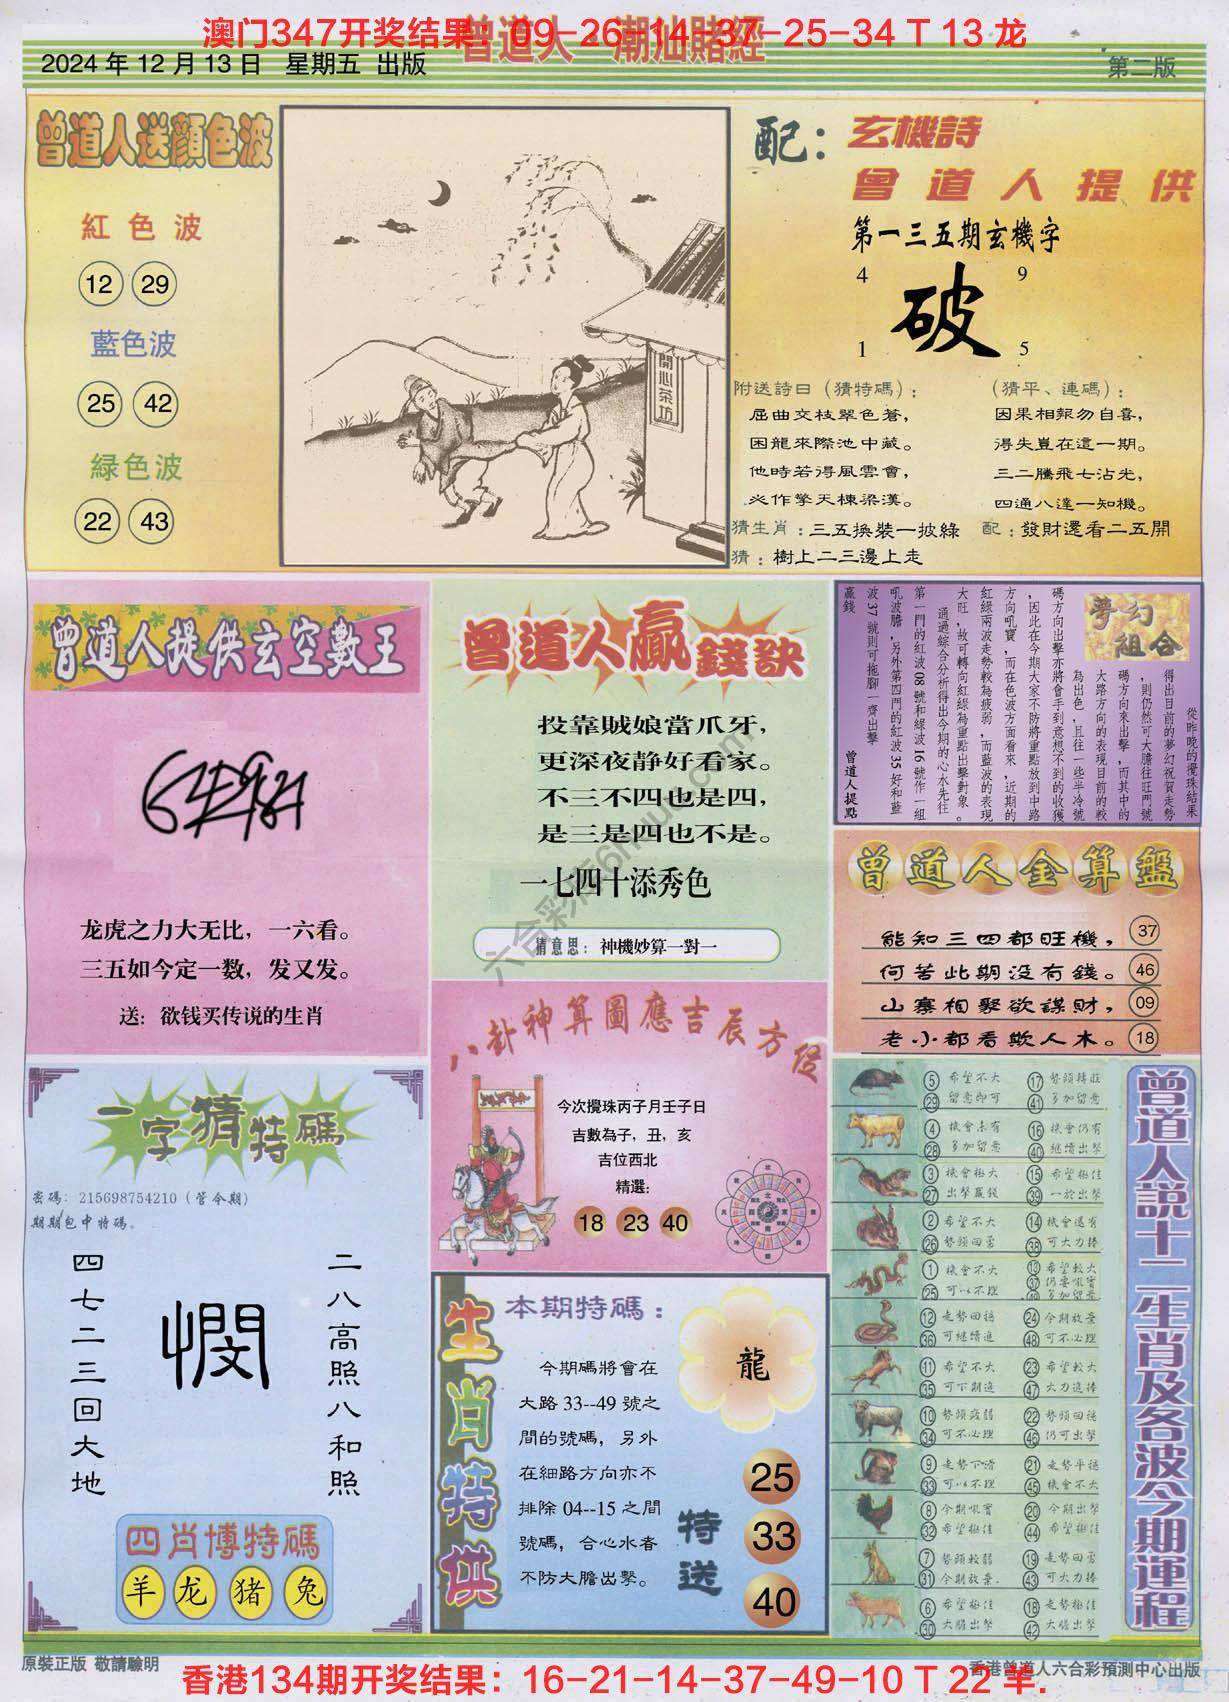 澳门347开奖结果：09-26-14-37-25-34 T 13 龙
曾道人 潮汕賭經
2024 年 12 月 13 日 星期五 出版
第二版
曾道人送顏色波
紅色波
12 29
藍色波
25 42
緑色波
22 43
開心茶坊
配：玄機詩
曾道人提供
第一三五期玄機字
4 9
破
1 5
附送詩曰（猜特碼）：
屈曲交枝翠色蒼，
困龍來際池中藏。
他時若得風雲會，
必作擎天棟梁漢。
（猜平、連碼）：
因果相報勿自喜，
得失豈在這一期。
三二騰飛七沾光，
四通八達一知機。
猜生肖：三五換裝一披綠 配：發財還看二五開
猜：樹上二三邊上走
曾道人提供玄空數王
龙虎之力大无比，一六看。
三五如今定一数，发又发。
送：欲钱买传说的生肖
曾道人贏錢訣
投靠賊娘當爪牙，
更深夜静好看家。
不三不四也是四，
是三是四也不是。
一七四十添秀色
猜意思：神機妙算一對一
夢幻組合
從昨晚的攪珠結果
得出目前的夢幻祝賀走勢
，則仍然可大膽往旺門號
碼方向來出擊，而其中的
大路方向的表現目前的較
為出色，且往一些半冷號
碼方向出擊亦將會手到意想不到的收獲
，因此在今期大家不防將重點放到中路
方向吼寶，而在色波方面看來，近期的
紅綠兩波走勢較為疲弱，而藍波的表現
大旺，故可轉向紅綠為重點出擊對象。
通過綜合分析得出今期的心水先往
第一門的紅波 08 號和綠波 16 號作一組
吼波膽，另外第四門的紅波 35 好和藍
波 37 號則可拖腳一齊出擊
贏錢
曾道人提點
曾道人金算盤
能知三四都旺機， 37
何苦此期没有錢。 46
山寨相聚欲謀財， 09
老小都看欺人本。 18
八卦神算圖應吉辰方位
今次攪珠丙子月壬子日
吉數為子，丑，亥
吉位西北
精選：
18 23 40
一字猜特碼
密碼：215698754210（管令期）
期期包中特碼。
四七二三回大地
憫
二八高照八和照
四肖博特碼
羊 龙 猪 兔
生肖特供
本期特碼：
龍
今期碼將會在
大路 33--49 號之
間的號碼，另外
在細路方向亦不
排除 04--15 之間
號碼，合心水者
不防大膽出擊。
特送
25
33
40
曾道人説十二生肖及各波今期運程
5 希望不大 17 勢頭轉旺
29 留意即可 41 多加留意
4 機會未有 16 機會仍有
28 多加留意 40 繼續出擊
3 機會極大 15 希望極佳
27 出擊贏錢 39 一於出擊
2 希望不大 14 機會還有
26 勢頭回勇 38 可大力捧
1 機會不大 13 希望較大
25 可以不理 37 仍要吼實
49 多加留意
12 走勢回穩 24 今期放棄
36 可繼續追 48 可不必理
11 希望不大 23 希望較大
35 可下期追 47 大力追捧
10 勢頭疲弱 22 勢頭回穩
34 可不必理 46 仍可出擊
9 走勢下滑 21 走勢平穩
33 可以不理 45 機會不大
8 今期吼實 20 今期出擊
32 希望極佳 44 希望極佳
7 勢頭較弱 19 走勢回勇
31 今期放棄. 43 可大力捧
6 希望極佳 18 走勢極佳
30 大膽出擊 42 大膽出擊
六合彩库6huuc.com
原裝正版 敬請驗明
香港曾道人六合彩預測中心出版
香港134期开奖结果：16-21-14-37-49-10 T 22 羊.